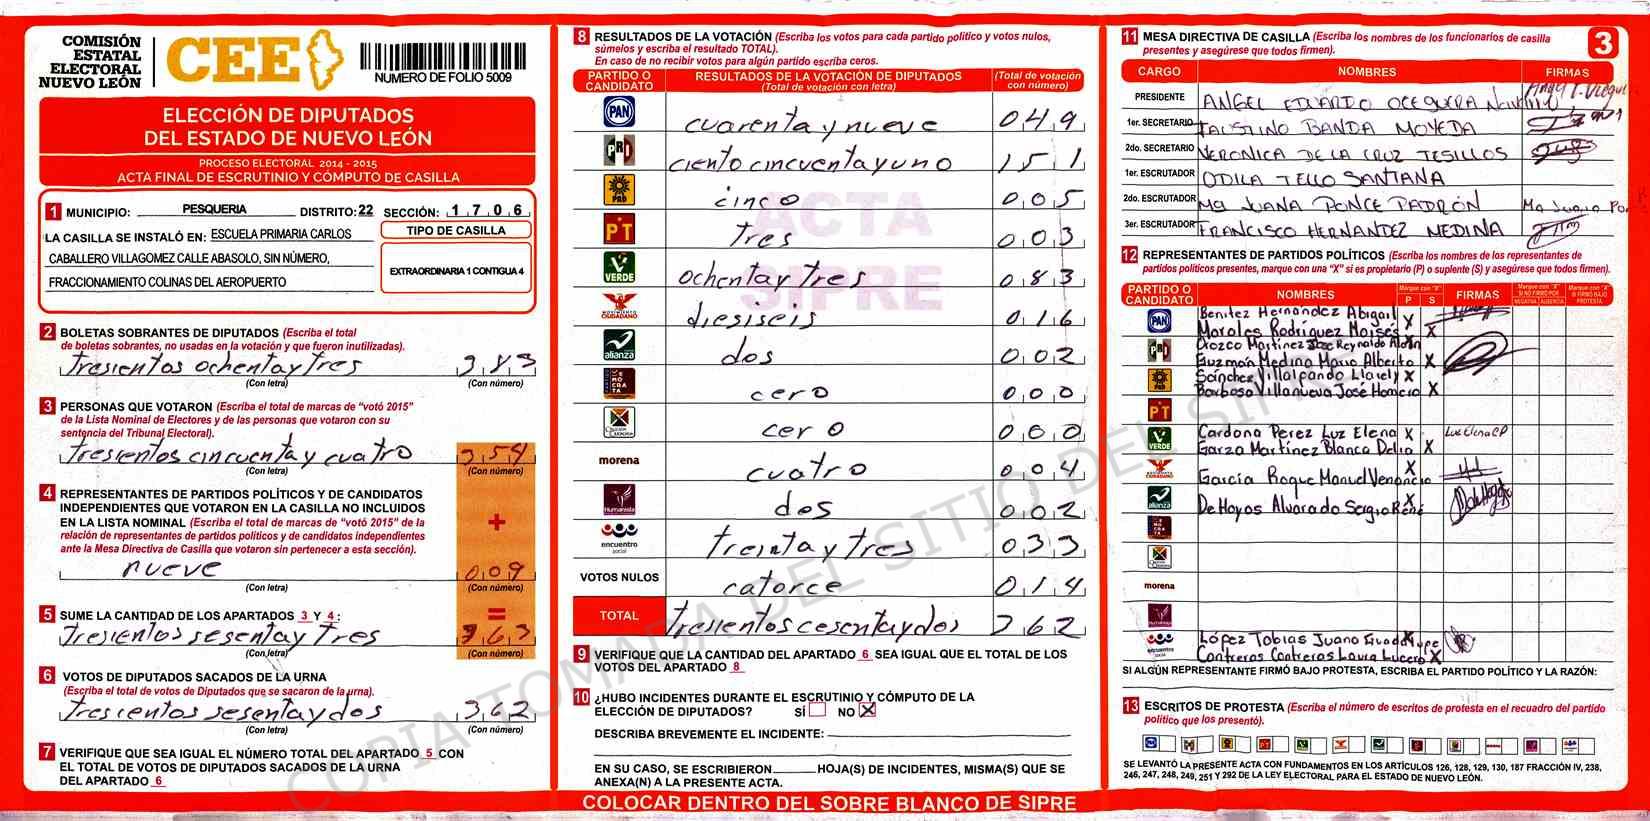 COMISIÓN
ESTATAL
ELECTORAL
NUEVO LEÓN
CEE
NUMERO DE FOLIO 5009
ELECCIÓN DE DIPUTADOS
DEL ESTADO DE NUEVO LEÓN
PROCESO ELECTORAL 2014 - 2015
ACTA FINAL DE ESCRUTINIO Y CÓMPUTO DE CASILLA
1 MUNICIPIO: PESQUERIA DISTRITO: 22 SECCIÓN: 1 7 0 6
LA CASILLA SE INSTALÓ EN: ESCUELA PRIMARIA CARLOS
CABALLERO VILLAGOMEZ CALLE ABASOLO, SIN NÚMERO,
FRACCIONAMIENTO COLINAS DEL AEROPUERTO
TIPO DE CASILLA
EXTRAORDINARIA 1 CONTIGUA 4
2 BOLETAS SOBRANTES DE DIPUTADOS (Escriba el total
de boletas sobrantes, no usadas en la votación y que fueron inutilizadas).
tresientos ochenta y tres 383
(Con letra) (Con número)
3 PERSONAS QUE VOTARON (Escriba el total de marcas de "votó 2015"
de la Lista Nominal de Electores y de las personas que votaron con su
sentencia del Tribunal Electoral).
tresientos cincuenta y cuatro 354
(Con letra) (Con número)
4 REPRESENTANTES DE PARTIDOS POLÍTICOS Y DE CANDIDATOS
INDEPENDIENTES QUE VOTARON EN LA CASILLA NO INCLUIDOS
EN LA LISTA NOMINAL (Escriba el total de marcas de "votó 2015" de la
relación de representantes de partidos políticos y de candidatos independientes
ante la Mesa Directiva de Casilla que votaron sin pertenecer a esta sección).
+
nueve 009
(Con letra) (Con número)
=
5 SUME LA CANTIDAD DE LOS APARTADOS 3 Y 4:
tresientos sesenta y tres 363
(Con letra) (Con número)
6 VOTOS DE DIPUTADOS SACADOS DE LA URNA
(Escriba el total de votos de Diputados que se sacaron de la urna).
tresientos sesenta y dos 362
(Con letra) (Con número)
7 VERIFIQUE QUE SEA IGUAL EL NÚMERO TOTAL DEL APARTADO 5 CON
EL TOTAL DE VOTOS DE DIPUTADOS SACADOS DE LA URNA
DEL APARTADO 6
8 RESULTADOS DE LA VOTACIÓN (Escriba los votos para cada partido político y votos nulos,
súmelos y escriba el resultado TOTAL).
En caso de no recibir votos para algún partido escriba ceros.
PARTIDO O CANDIDATO RESULTADOS DE LA VOTACIÓN DE DIPUTADOS (Total de votación con letra) (Total de votación con número)
PAN cuarenta y nueve 049
PRD ciento cincuenta y uno 151
PRD cinco 005
PT tres 003
VERDE ochenta y tres 083
MOVIMIENTO CIUDADANO diesiseis 016
alianza dos 002
DEMOCRATA cero 000
cero 000
morena cuatro 004
Humanista dos 002
encuentro social treinta y tres 033
VOTOS NULOS catorce 014
TOTAL tresientos cesenta y dos 362
ACTA
SIPRE
9 VERIFIQUE QUE LA CANTIDAD DEL APARTADO 6 SEA IGUAL QUE EL TOTAL DE LOS
VOTOS DEL APARTADO 8
10 ¿HUBO INCIDENTES DURANTE EL ESCRUTINIO Y CÓMPUTO DE LA
ELECCIÓN DE DIPUTADOS? SÍ NO X
DESCRIBA BREVEMENTE EL INCIDENTE:
EN SU CASO, SE ESCRIBIERON HOJA(S) DE INCIDENTES, MISMA(S) QUE SE
ANEXA(N) A LA PRESENTE ACTA.
COLOCAR DENTRO DEL SOBRE BLANCO DE SIPRE
11 MESA DIRECTIVA DE CASILLA (Escriba los nombres de los funcionarios de casilla
presentes y asegúrese que todos firmen).
3
CARGO NOMBRES FIRMAS
PRESIDENTE ANGEL EDUARDO OCEGUERA
1er. SECRETARIO FAUSTINO BANDA MOVEDA
2do. SECRETARIO VERONICA DE LA CRUZ TESILLOS
1er. ESCRUTADOR ODILA TELLO SANTANA
2do. ESCRUTADOR Ma JUANA PONCE PADRÓN Ma Juana Po
3er. ESCRUTADOR FRANCISCO HERNANDEZ MEDINA
12 REPRESENTANTES DE PARTIDOS POLÍTICOS (Escriba los nombres de los representantes de
partidos políticos presentes, marque con una "X" si es propietario (P) o suplente (S) y asegúrese que todos firmen).
PARTIDO O CANDIDATO NOMBRES Marque con "X" P S FIRMAS Marque con "X" SI NO FIRMÓ POR NEGATIVA AUSENCIA Marque con "X" SI FIRMÓ BAJO PROTESTA
PAN Benitez Hernández Abigail X
Morales Rodríguez Moisés X
PRD Orozco Martínez José Reynaldo
Guzmán Medina Mario Alberto X
PRD Sánchez Villalpando Llarely X
Barbosa Villanueva José Homero X
PT
VERDE Cardona Perez Luz Elena X Luz Elena CP
Garza Martínez Blanca Delia X
García Roque Manuel Venancio X
alianza De Hoyos Alvarado Sergio René X
morena
Humanista
encuentro social López Tobias Juana Guadalupe X
Contreras Contreras Laura Lucero X
SI ALGÚN REPRESENTANTE FIRMÓ BAJO PROTESTA, ESCRIBA EL PARTIDO POLÍTICO Y LA RAZÓN:
13 ESCRITOS DE PROTESTA (Escriba el número de escritos de protesta en el recuadro del partido
político que los presentó).
SE LEVANTÓ LA PRESENTE ACTA CON FUNDAMENTOS EN LOS ARTÍCULOS 126, 128, 129, 130, 187 FRACCIÓN IV, 238,
246, 247, 248, 249, 251 Y 292 DE LA LEY ELECTORAL PARA EL ESTADO DE NUEVO LEÓN.
COPIA TOMADA DEL SITIO DEL SIPRE